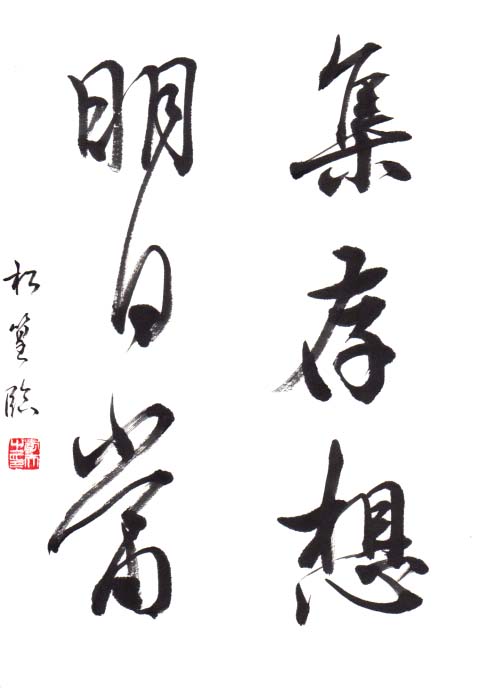 集存想
明日當
松篁臨